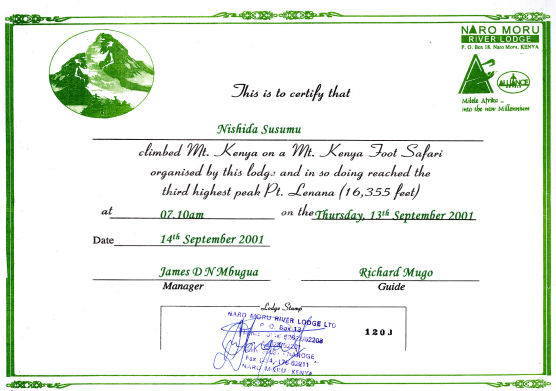 NARO MORU
RIVER LODGE
P. O. Box 18, Naro Moru, KENYA
ALLIANCE
Milele Afrika ..
into the new Millennium
This is to certify that
Nishida Susumu
climbed Mt. Kenya on a Mt. Kenya Foot Safari
organised by this lodge and in so doing reached the
third highest peak Pt. Lenana (16,355 feet)
at 07.10am on the Thursday, 13th September 2001
Date 14th September 2001
James D N Mbugua Richard Mugo
Manager Guide
Lodge Stamp
NARO MORU RIVER LODGE LTD
P. O. Box
NARO MORU, KENYA